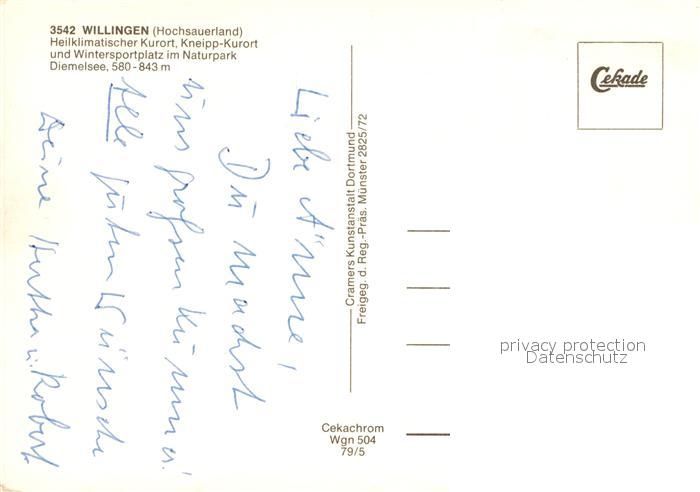 3542 WILLINGEN (Hochsauerland)
Heilklimatischer Kurort, Kneipp-Kurort
und Wintersportplatz im Naturpark
Diemelsee, 580-843 m
Liebe Änne!
Du machst
uns großen Kummer!
Alle guten Wünsche
Deine Hertha u. Robert
Cramers Kunstanstalt Dortmund
Freigeg. d. Reg.-Präs. Münster 2825/72
Cekade
privacy protection
Datenschutz
Cekachrom
Wgn 504
79/5